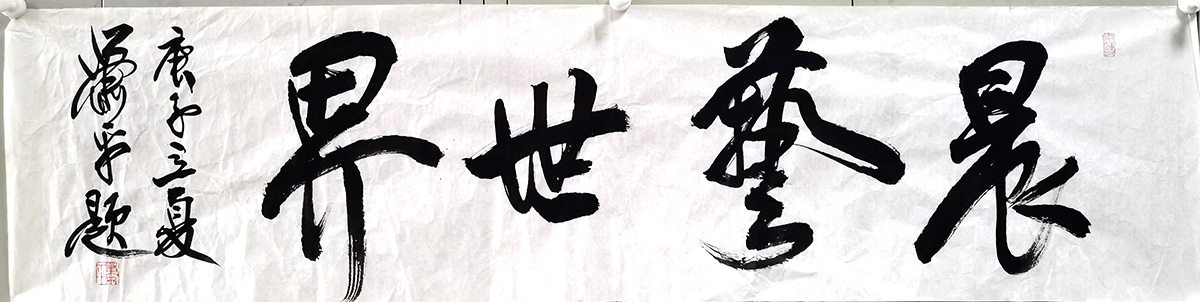 晨藝世界
庚子立夏
平題